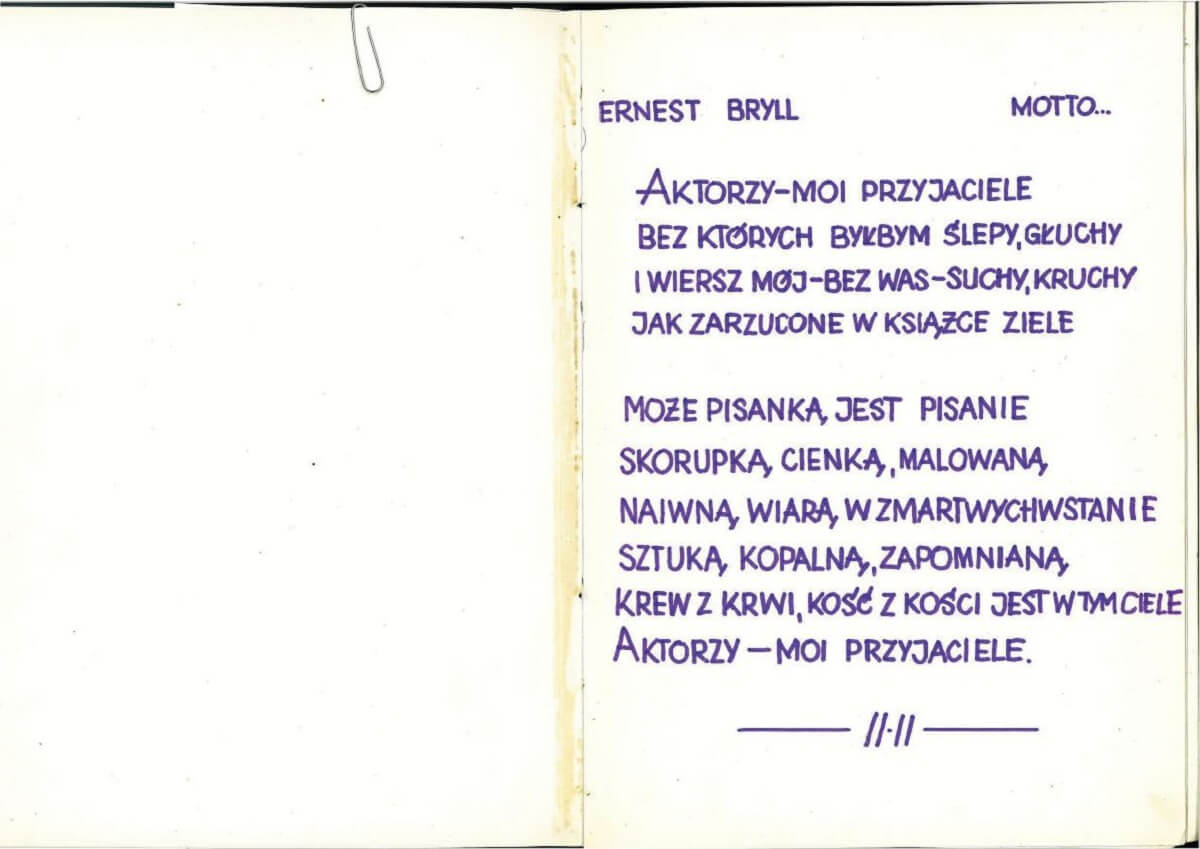 ERNEST BRYLL MOTTO...
AKTORZY-MOI PRZYJACIELE
BEZ KTÓRYCH BYŁBYM ŚLEPY, GŁUCHY
I WIERSZ MÓJ-BEZ WAS-SUCHY, KRUCHY
JAK ZARZUCONE W KSIĄŻCE ZIELE
MOŻE PISANKĄ JEST PISANIE
SKORUPKĄ CIENKĄ, MALOWANĄ
NAIWNĄ WIARĄ W ZMARTWYCHWSTANIE
SZTUKĄ KOPALNĄ, ZAPOMNIANĄ
KREW Z KRWI, KOŚĆ Z KOŚCI JEST W TYM CIELE
AKTORZY – MOI PRZYJACIELE.
//·//